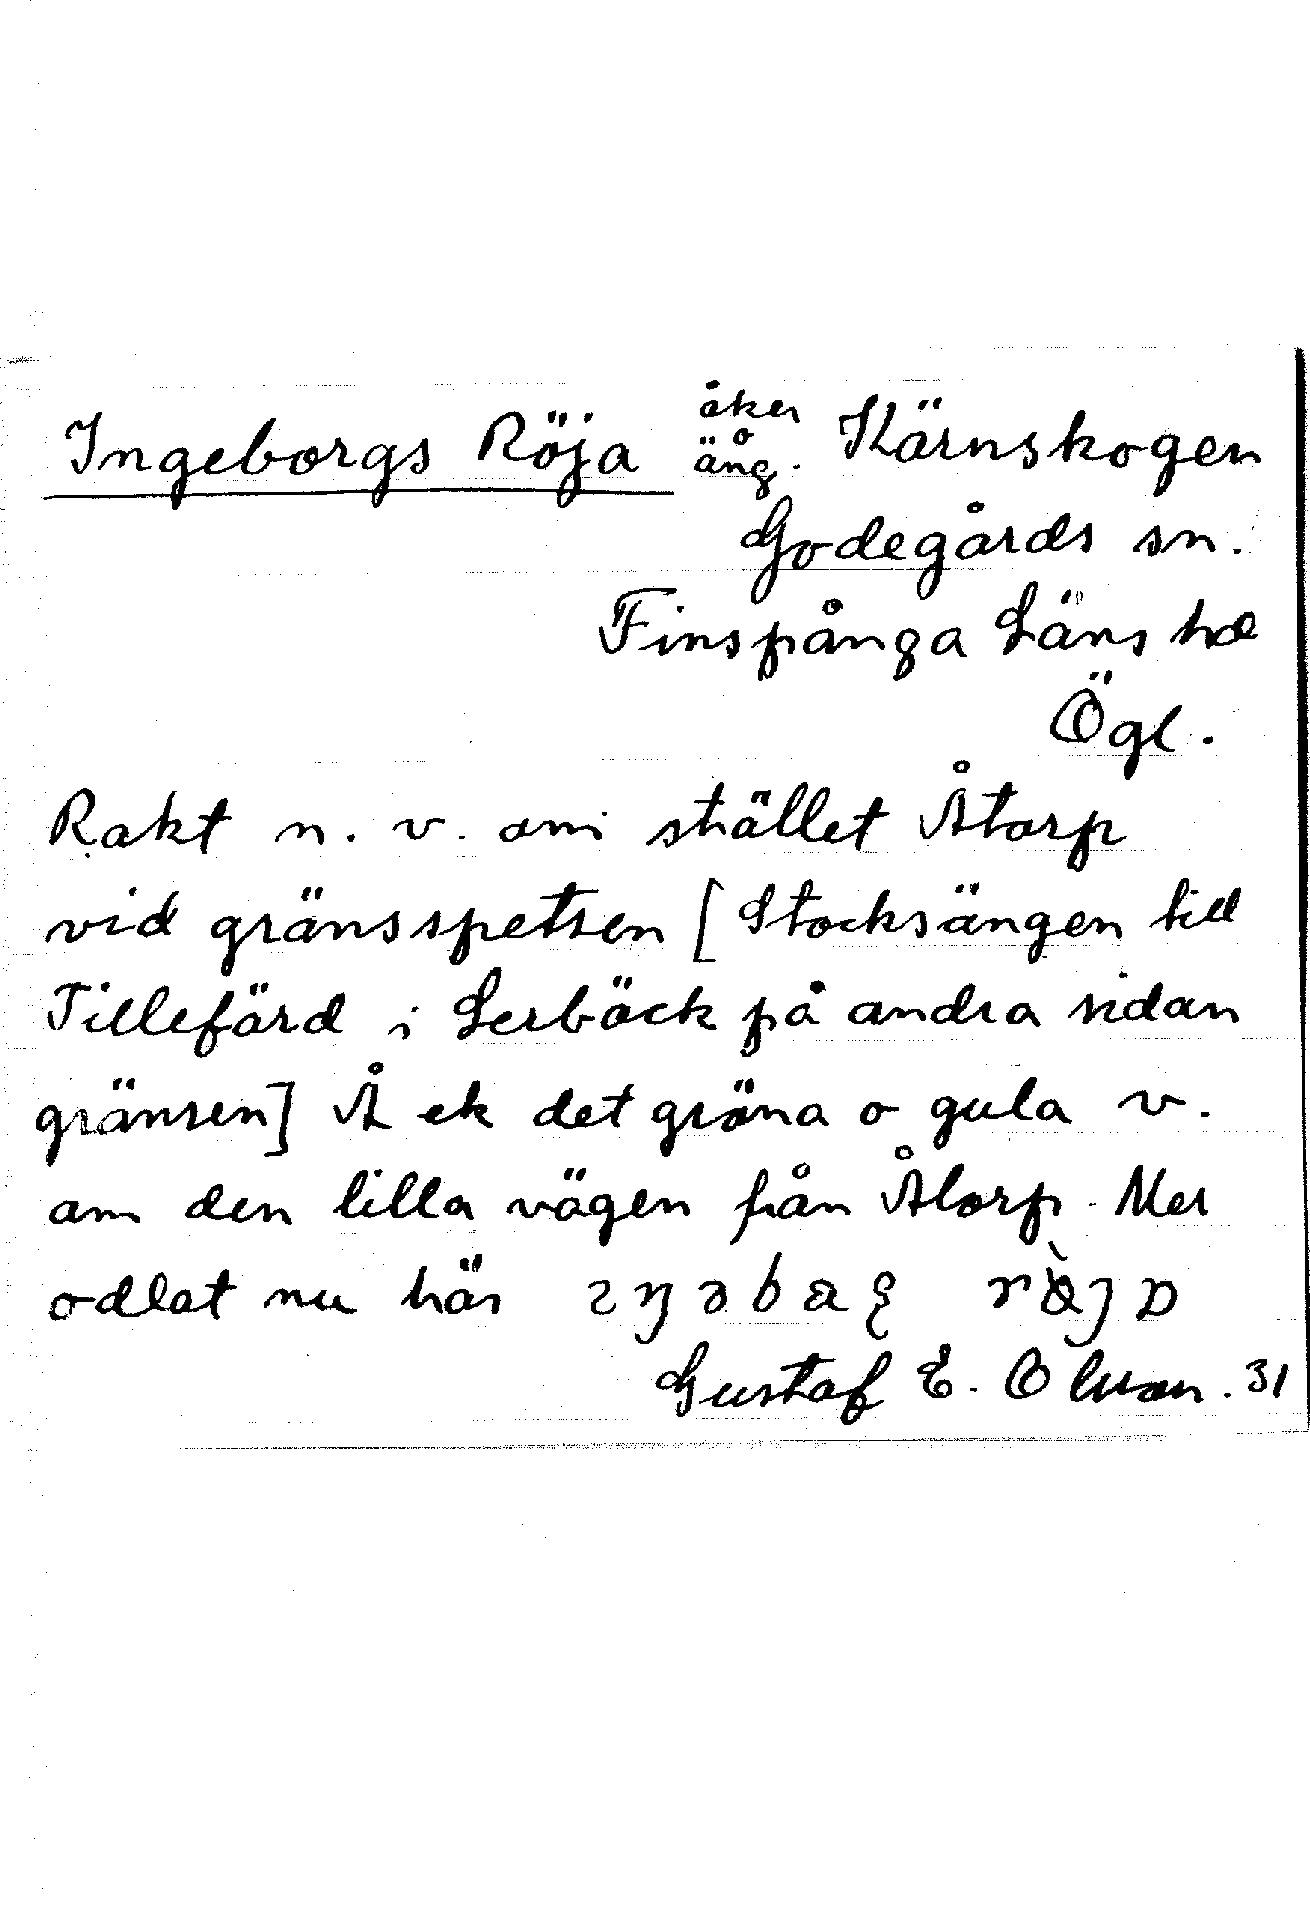 Ingeborgs Röja åker o äng. Kärnskogen
Godegårds sn.
Finspånga Läns hd
Ögl.
Rakt n. v. om stället Åtorp
vid gränsspetsen [Stocksängen till
Tillefärd i Lerbäck på andra sidan
gränsen] Å ek det gröna o gula v.
om den lilla vägen från Åtorp. Mer
odlat nu här
Gustaf E. Olsson. 31